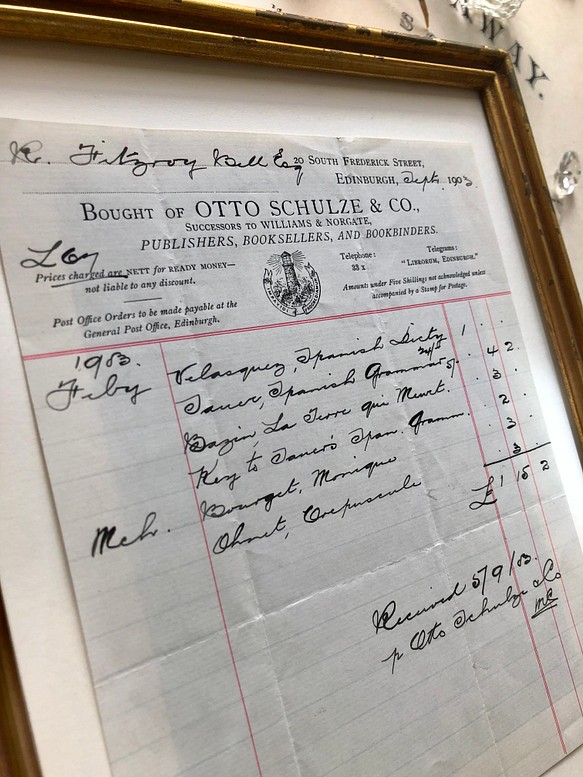 SWAY.
R. Fitzroy Bell Esq
20 SOUTH FREDERICK STREET,
EDINBURGH, Sept. 1903.
BOUGHT OF OTTO SCHULZE & CO.,
SUCCESSORS TO WILLIAMS & NORGATE,
PUBLISHERS, BOOKSELLERS, AND BOOKBINDERS.
Prices charged are NETT for READY MONEY—
not liable to any discount.
Post Office Orders to be made payable at the
General Post Office, Edinburgh.
Telephone:
33 x
Telegrams:
"LIBRORUM, EDINBURGH."
Amounts under Five Shillings not acknowledged unless
accompanied by a Stamp for Postage.
1903.
Feby Velasquez, Spanish Dicty 1 . .
Sauer, Spanish Grammar 5/. 4 2.
Bazin, La Terre qui Meurt. 3.
Key to Sauer's Span. Gramm. 2.
Mch. Bourget, Monique 3.
Ohnet, Crepuscule 3.
£ 1 15 2
Received 5/9/03.
p Otto Schulze & Co